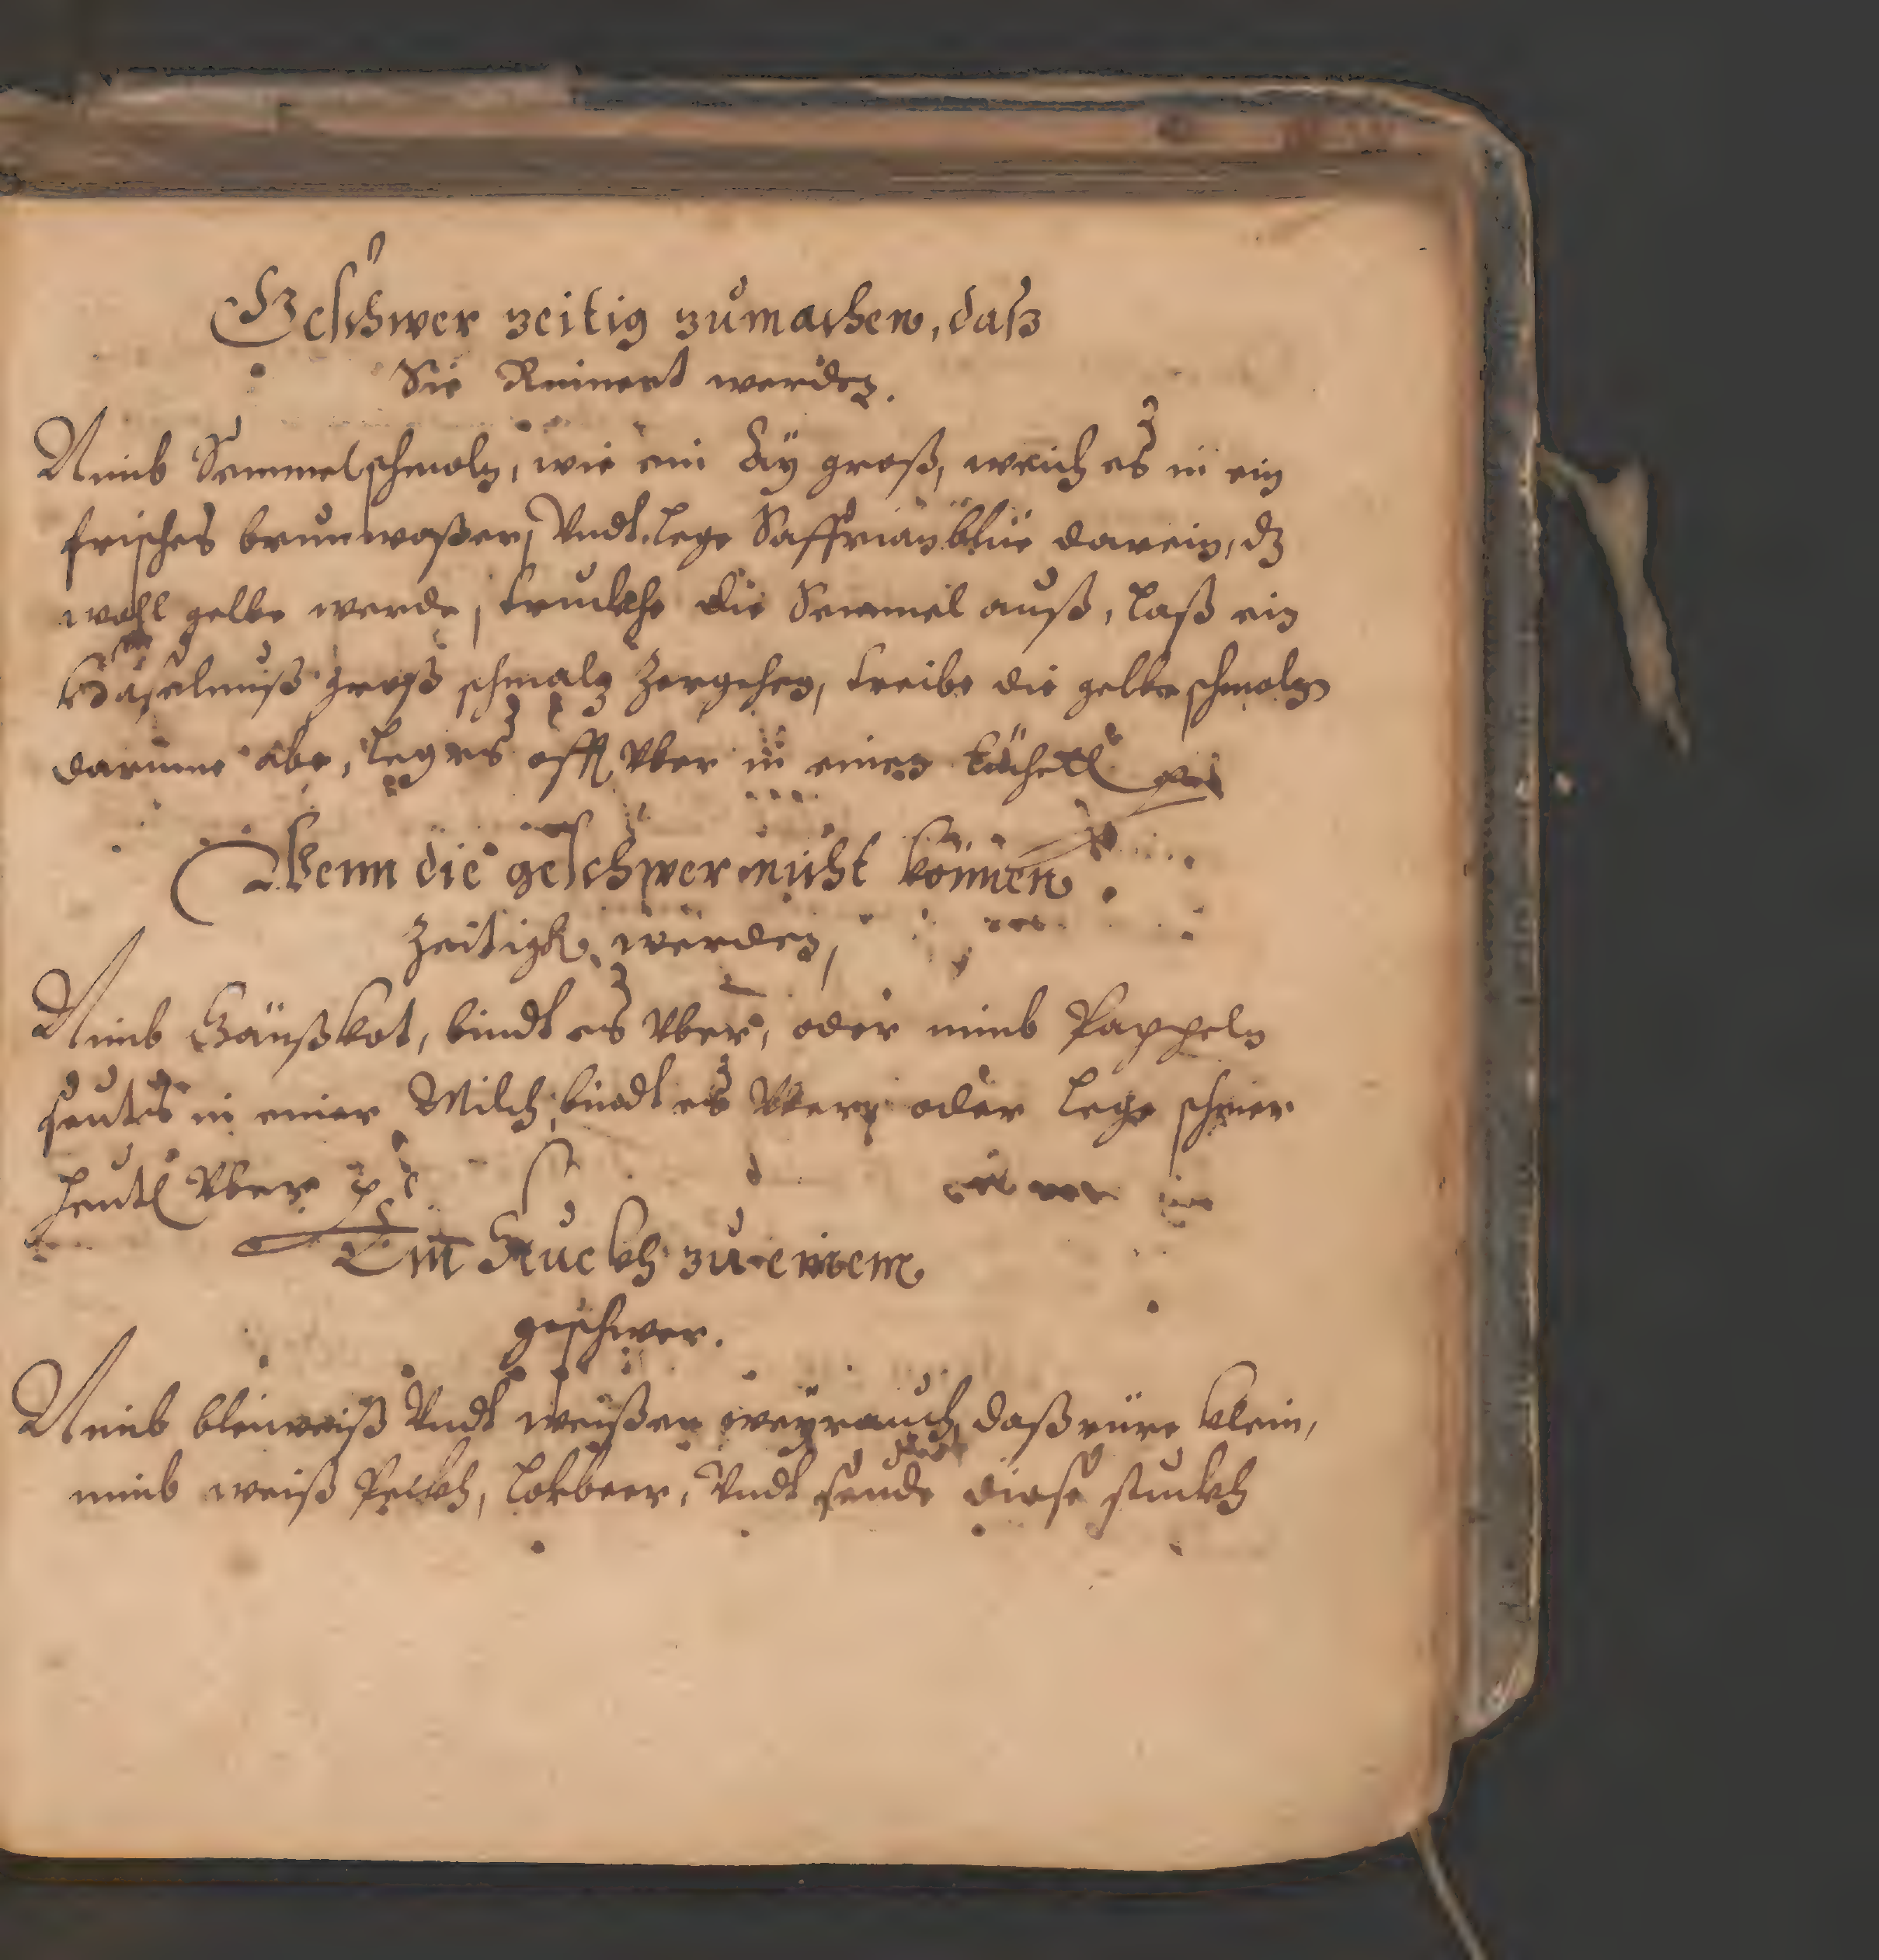 Geschwer zeitig zumachen, dasz
Sie Rinnent werden.
Nimb Semmelschmoln, wie ein Ay groß, weich es in ein
frisches brunwaßer, Vndt lege Saffrianblüe darein, dz
wohl gelbe werde, truckhe die Semmel auß, laß ein
Haselnuß groß schmalz Zergehen, treibe die gelbe schmoln
darinne abe, leg es offt Vber in einen tüchetl
Wenn die geschwer nicht können
Zeitigk werden,
Nimb Gänßkot, bindt es Vber, oder nimb Pappeln
seuts in einer Milch, bindt es Vber, oder lege schmer
heutl Vber
Ein Stuckh zu einem
geschwer.
Nimb bleiweiß Vndt weißen weyrauch, daß rüre klein,
nimb weiß Pechh, lorbeer, Vndt seude diese stuckh